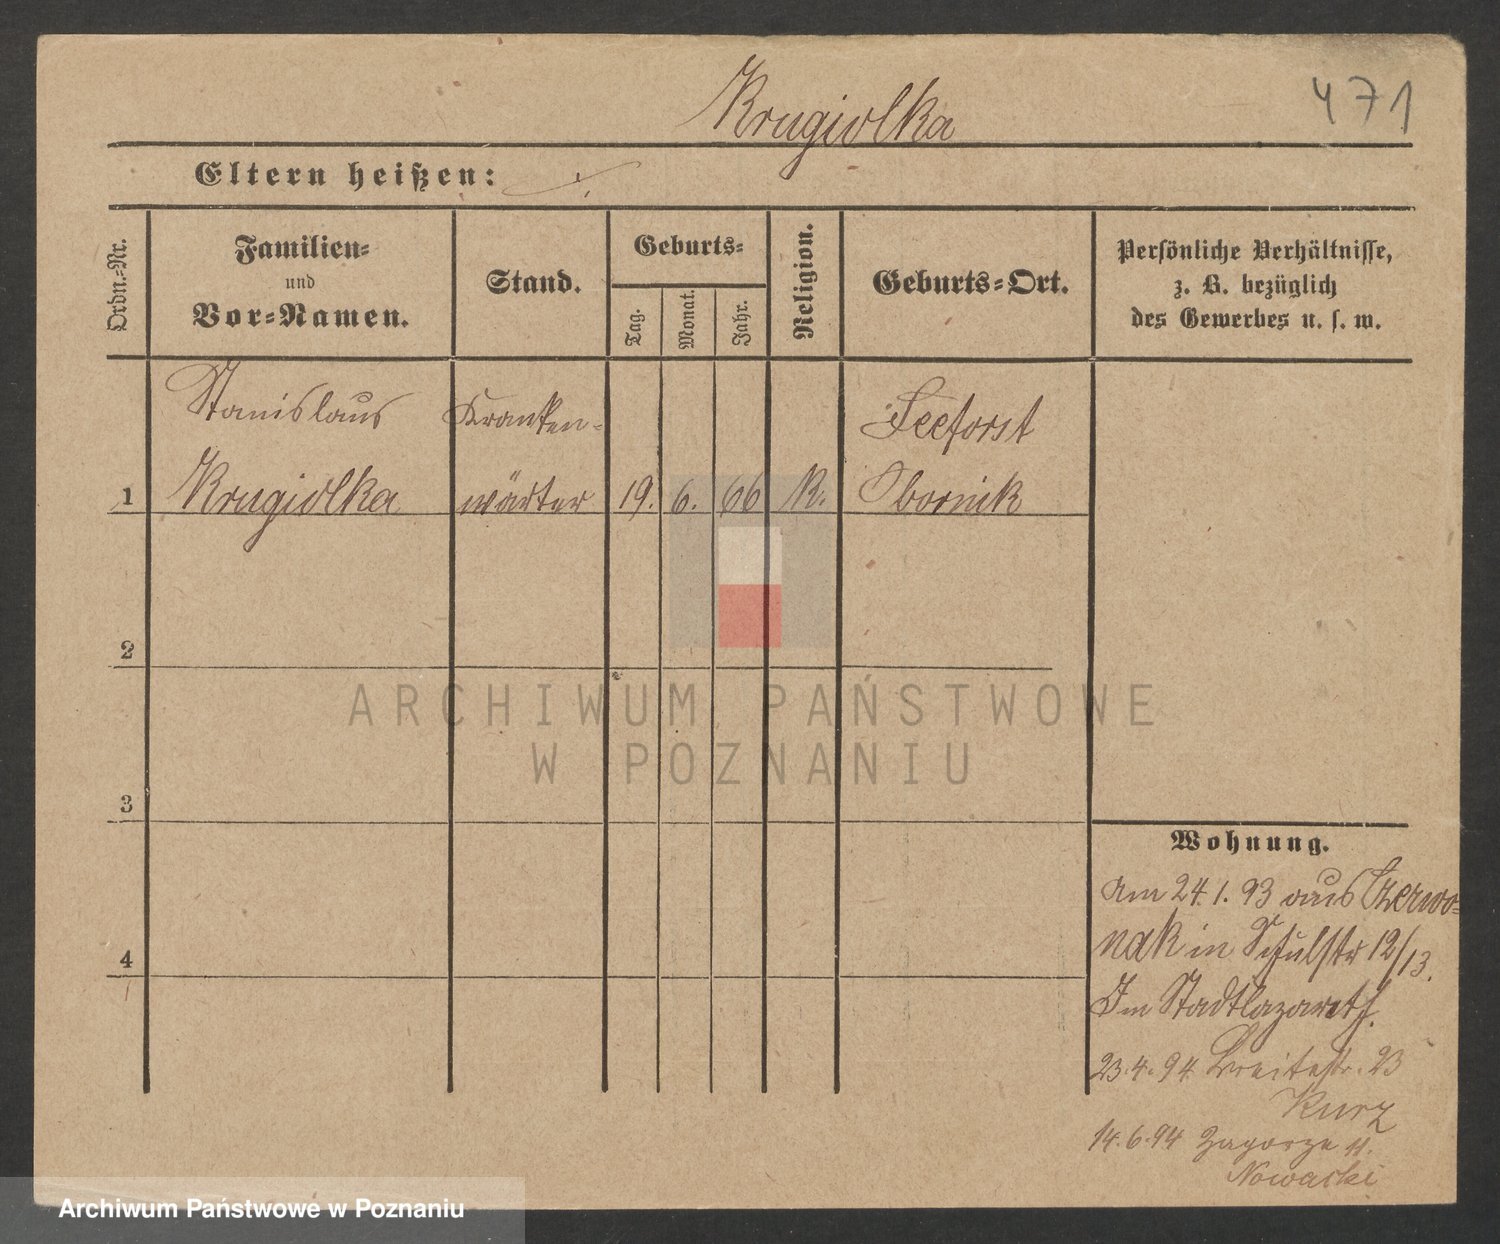 Krugiolka
471
Eltern heißen:
Ordn.=Nr.
Familien=
und
Vor=Namen.
Stand.
Geburts=
Tag.
Monat.
Jahr.
Religion.
Geburts=Ort.
Persönliche Verhältnisse,
z. B. bezüglich
des Gewerbes u. s. w.
Stanislaus
Kranken-
Seeforst
1
Krugiolka
wärter
19.
6.
66
K.
Obornik
2
ARCHIWUM PAŃSTWOWE
W POZNANIU
3
Wohnung.
Am 24.1.93 aus Czerwo=
nak in Schulstr 12/13.
Im Stadtlazareth.
4
23.4.94 Breitestr. 23
Kurz
14.6.94 Zagorze 11.
Nowacki
Archiwum Państwowe w Poznaniu